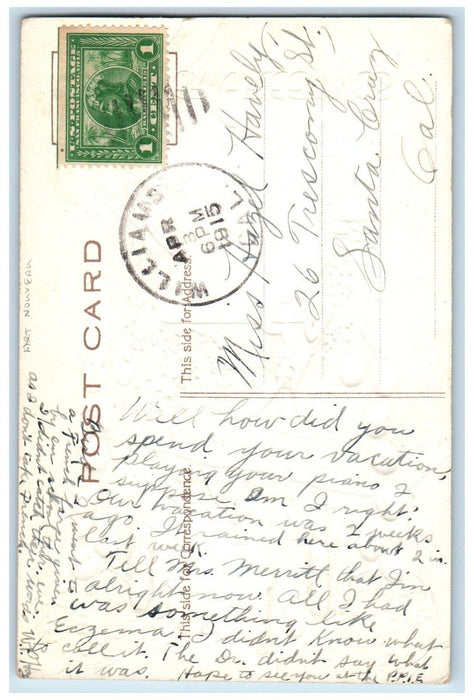 U.S. POSTAGE
SAN FRANCISCO, 1915
1 CENT 1
WILLIAMS
APR
3
6 PM
1915
CAL.
POST CARD
ART NOUVEAU
This side for Address
This side for Correspondence
Miss Hazel Havely
26 Trescony St.
Santa Cruz
Cal.
Well how did you
spend your vacation,
playing your piano I
suppose am I right.
Our vacation was 2 weeks
ago. It rained here about 2 in.
last week.
Tell Mrs. Merritt that I'm
alright now. All I had
was something like
Eczema, I didn't know what
to call it. The Dr. didn't say what
it was. Hope to see you at the P.P.I.E.